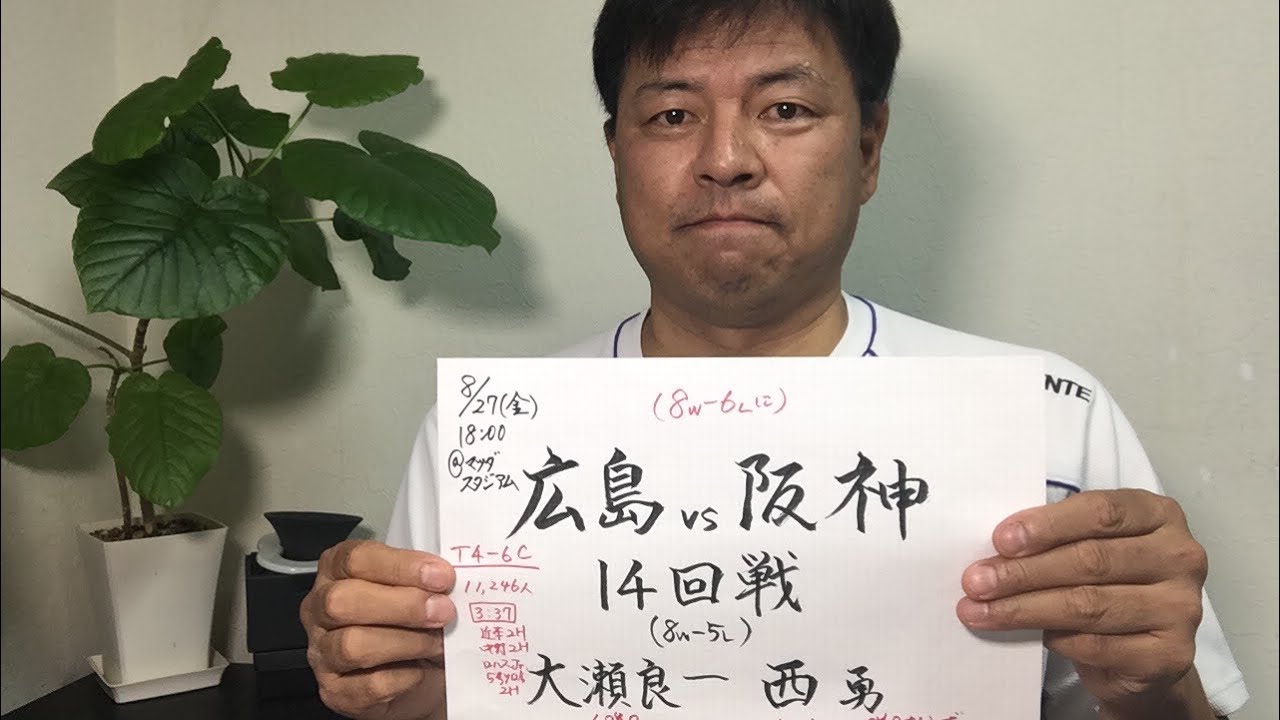 8/27(金)
(8w-6Lに)
18:00
@マツダ
スタジアム
広島 vs 阪神
T4-6C
14回戦
11,246人
(8w-5L)
3:37
近本2H
中野2H
ロハスJr
5号ソロ含
2H
大瀬良 ー 西勇
NTE